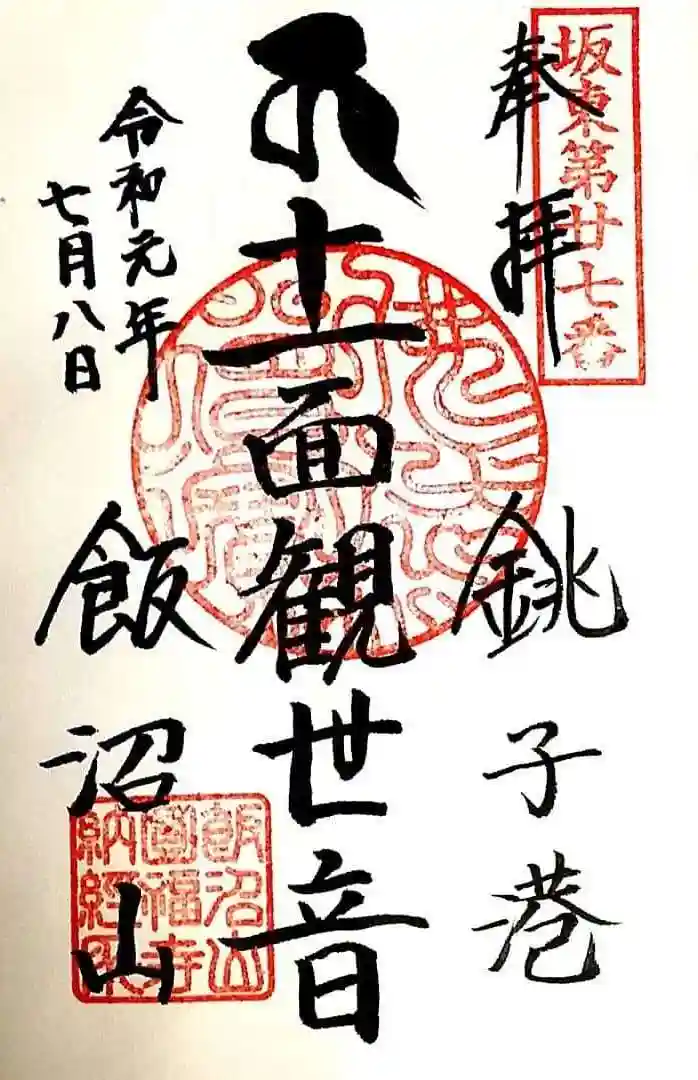 坂東第廿七番
奉拝
銚子港
十一面観世音
令和元年
七月八日
飯沼山
飯沼山
圓福寺
納経印